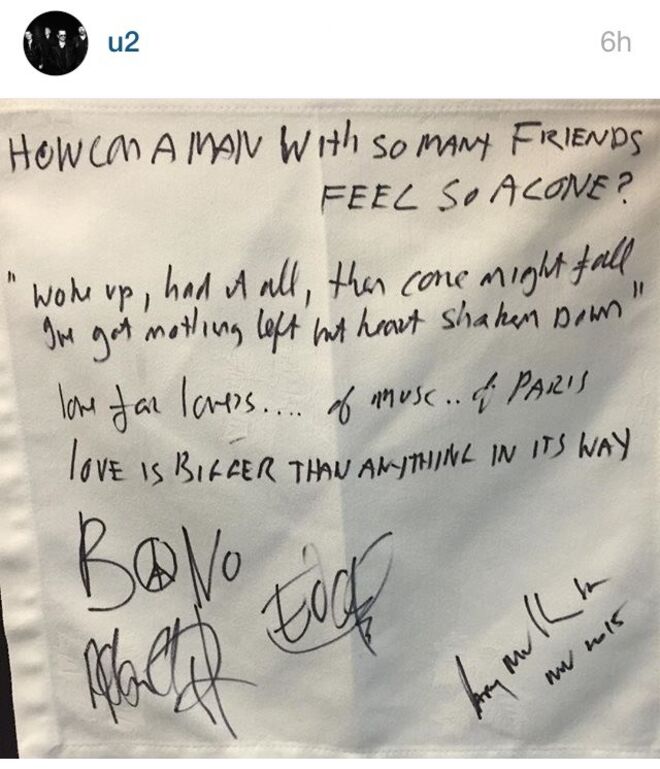 u2
6h
HOW CAN A MAN WITH SO MANY FRIENDS
FEEL SO ALONE?
"woke up, had it all, then come night fall
I've got nothing left but heart shaken Down"
love for lovers.... of music.. of PARIS
LOVE IS BIGGER THAN ANYTHING IN ITS WAY
BONO
EDGE
Adam
Larry Mullen Jr
NOV 2015